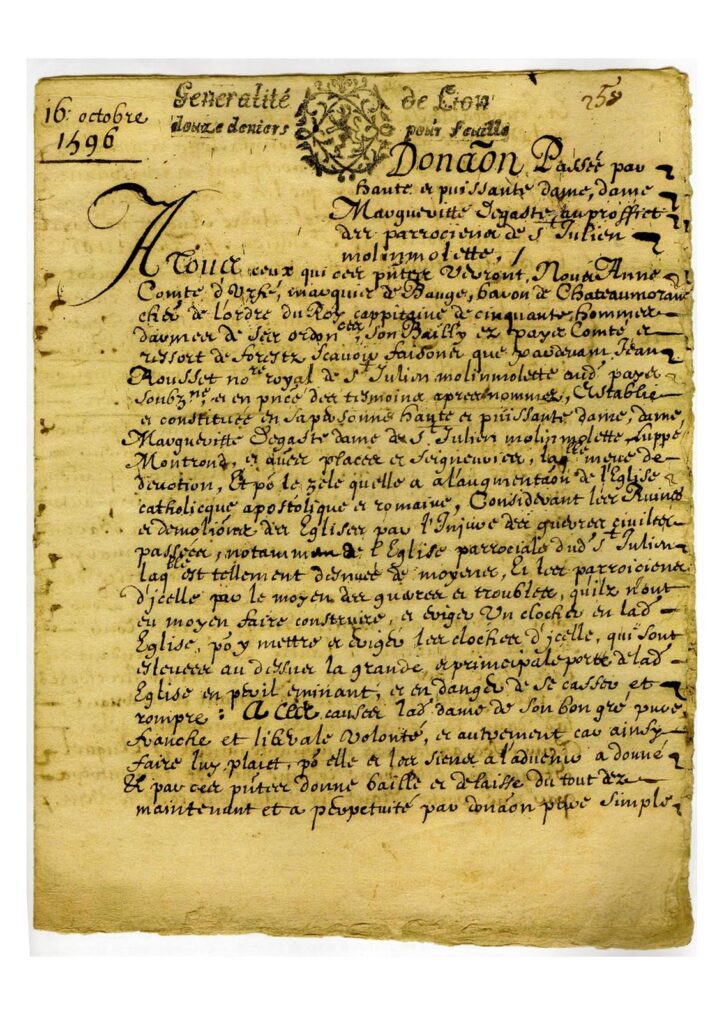 16. octobre
1596
Generalité de Lion
douze deniers pour feuille
258
Donaõn Passéé par
haute et puissante dame, dame
Margueritte Degaste, au proffict
des parrociens de St Julien
molinmolette, /
A Tous ceux qui ces pñtes verront, Nous Anne
Comte d'Urfé, marquis de Bauge, baron de Chateaumorand
cher de lordre du Roy cappitaine de cinquante hommes
darmes de ses ordonces, son Bailly ez pays Comté et
ressort de forestz Scavoir faisons que pardevant Jean
Rousset nore royal de St Julien molinmolette aud pays
soubzné, et en pñce des tesmoins apres nommes, Establie
et constituée en sa personne haute et puissante dame, dame
Margueritte Degaste dame de St Julien molinmolette Luppé
Montrond, et autres places et seigneuries, laqlle meue de
devotion, Et po le zele quelle a a l'augmentaõn de l'Eglise
catholicque apostolique et romaine, Considerant les Ruines
et demolions des Eglises par l'Injure des guerres civilles
passees, notamman de l'Eglise parrociale dud St Julien
laqlle est tellement desnuée de moyens, Et les parroiciens
d'jcelle par le moyen des guerres et troubles, quilz n'ont
eu moyen faire construire, et eriger Un clocher en lad
Eglise, po y mettre et eriger les cloches d'jcelle, qui sont
esleuees au dessus la grande, et principale porte de lad
Eglise en peril eminant, et en danger de se casser et
rompre : A ces causes lad dame de son bon gré pure
franche et liberale volonté, et autrement car ainsy
faire luy plaict, po elle et les siens à l'advenir a donné
Et par ces pñtes donne baille et delaisse du tout dez
maintenant et a perpetuité par donaõn pure simple